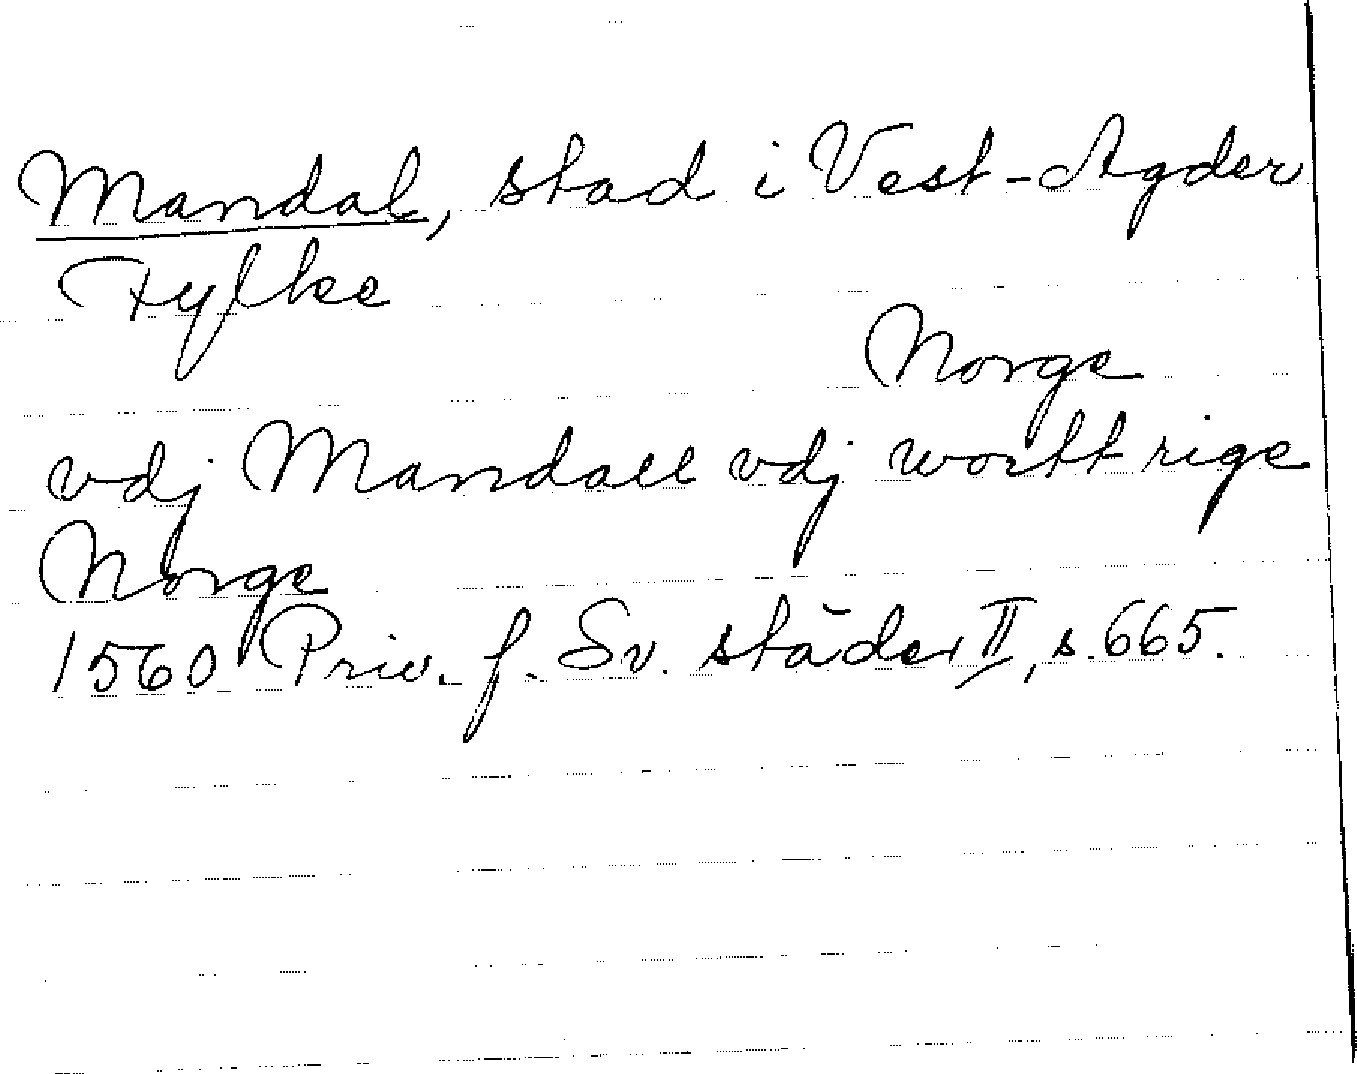 Mandal, stad i Vest-Agder
Fylke
Norge
vdj Mandall vdj wortt rige
Norge
1560 Priv. f. Sv. städer II, s. 665.